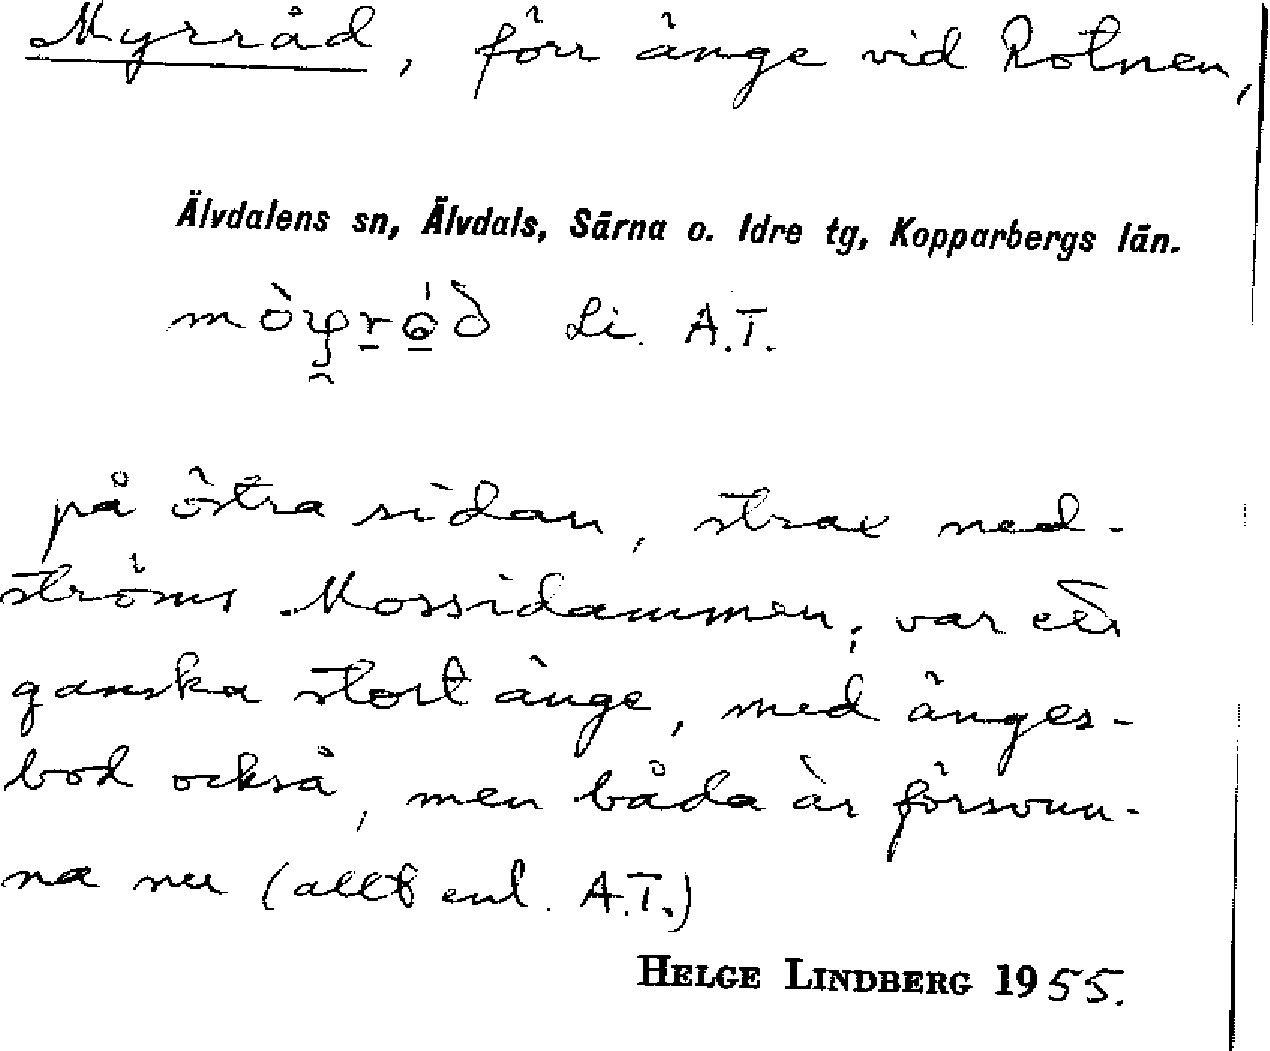 Myrråd, förr änge vid Rotnen,
Älvdalens sn, Älvdals, Särna o. Idre tg, Kopparbergs län.
Li. A.T.
på östra sidan, strax ned-
ströms Mossidammen, var ett
ganska stort änge, med änges-
bod också, men båda är försvun-
na nu (allt enl. A.T.)
HELGE LINDBERG 1955.